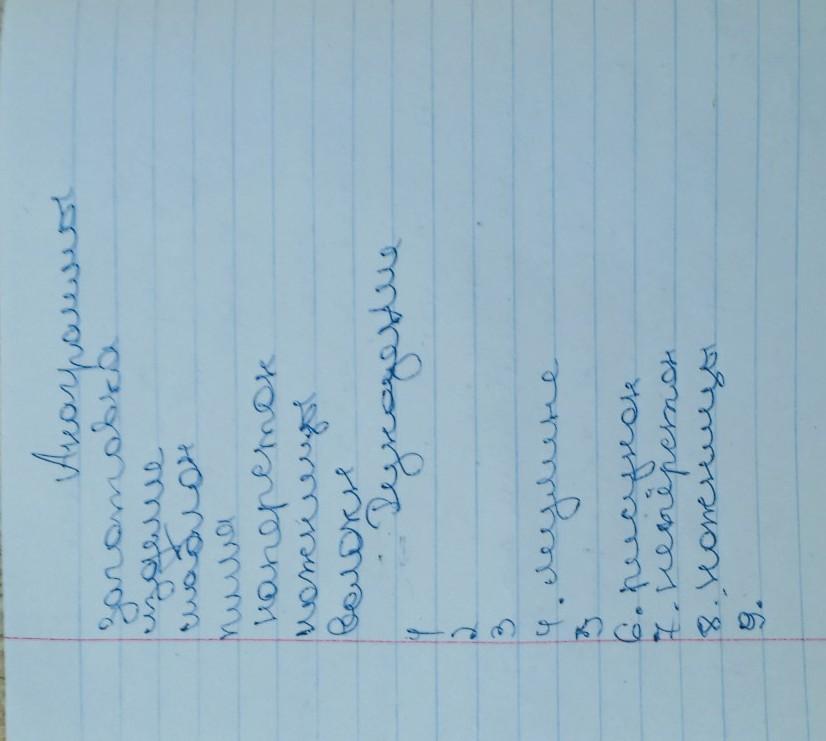 Анаграммы
заготовка
изделие
шаблон
пила
наперсток
ножницы
Волокн
Рукоделие
1
2
3
4. мулине
5
6. рисунок
7. напёрсток
8. ножницы
9.